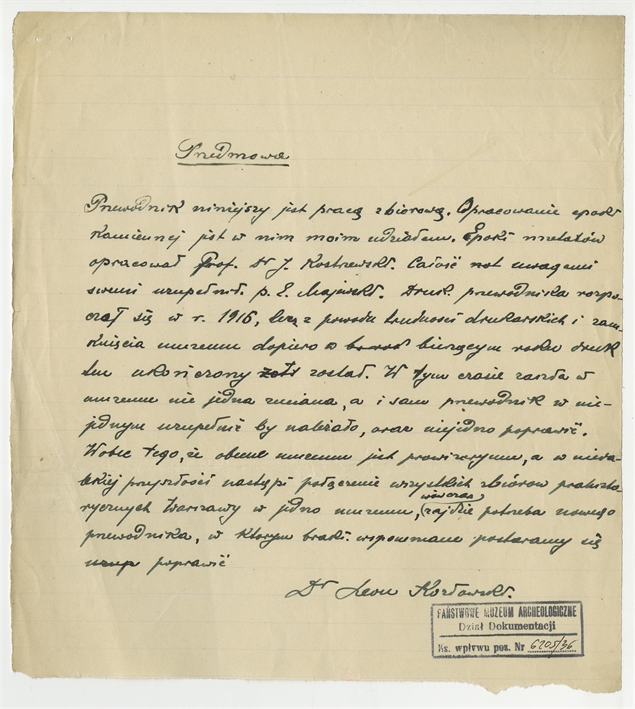 Przedmowa
Przewodnik niniejszy jest pracą zbiorową. Opracowanie epoki
kamiennej jest w nim moim udziałem. Epoki metalów
opracował Prof. Dr J. Kostrzewski. Całość uwagami
swemi uzupełnił p. E. Majewski. Druk przewodnika rozpo-
czął się w r. 1916, lecz z powodu trudności drukarskich i zam-
knięcia muzeum dopiero w bieżącym roku druk
ten ukończony został. W tym czasie zaszła w
muzeum nie jedna zmiana, a i sam przewodnik w nie-
jednym uzupełnić by należało, oraz niejedno poprawić.
Wobec tego, że obecne muzeum jest prowizoryum, a w nieda-
lekiej przyszłości nastąpi połączenie wszystkich zbiorów prahisto-
rycznych Warszawy w jedno muzeum, wówczas zajdzie potrzeba nowego
przewodnika, w którym braki wspomniane postaramy się
poprawić
Dr Leon Kozłowski.
PAŃSTWOWE MUZEUM ARCHEOLOGICZNE
Dział Dokumentacji
Ks. wpływu poz. Nr 6205/36